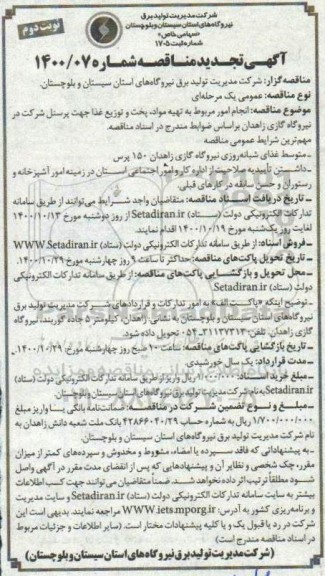 شرکت مدیریت تولید برق
نیروگاه‌های استان سیستان و بلوچستان
«سهامی خاص»
شماره ثبت ۱۷۰۵
نوبت دوم
آگهی تجدید مناقصه شماره ۱۴۰۰/۰۷
مناقصه گزار: شرکت مدیریت تولید برق نیروگاه‌های استان سیستان و بلوچستان.
نوع مناقصه: عمومی یک مرحله‌ای
موضوع مناقصه: انجام امور مربوط به تهیه مواد، پخت و توزیع غذا جهت پرسنل شرکت در
نیروگاه گازی زاهدان براساس ضوابط مندرج در اسناد مناقصه.
مهم‌ترین شرایط عمومی مناقصه
ـ متوسط غذای شبانه‌روزی نیروگاه گازی زاهدان ۱۵۰ پرس
ـ داشتن تأییدیه صلاحیت از اداره کار و امور اجتماعی استان در زمینه امور آشپزخانه و
رستوران و حسن سابقه در کارهای قبلی.
ـ تاریخ دریافت اسناد مناقصه: متقاضیان واجد شرایط می‌توانند از طریق سامانه
تدارکات الکترونیکی دولت (ستاد) Setadiran.ir از روز دوشنبه مورخ ۱۴۰۰/۱۰/۱۳
لغایت روز یک‌شنبه مورخ ۱۴۰۰/۱۰/۱۹ اقدام نمایند.
ـ فروش اسناد: از طریق سامانه تدارکات الکترونیکی دولت (ستاد) WWW.Setadiran.ir
ـ تاریخ تحویل پاکت‌های مناقصه: حداکثر تا ساعت ۹ روز چهارشنبه مورخ ۱۴۰۰/۱۰/۲۹.
ـ محل تحویل و بازگشایی پاکت‌های مناقصه: از طریق سامانه تدارکات الکترونیکی
دولت (ستاد) Setadiran.ir
ـ توضیح اینکه «پاکت الف» به امور تدارکات و قراردادهای شرکت مدیریت تولید برق
نیروگاه‌های استان سیستان و بلوچستان به نشانی زاهدان، کیلومتر ۵ جاده گوربند، نیروگاه
گازی زاهدان. تلفن: ۳۱۱۳۷۳۱۳-۰۵۴ تحویل داده شود.
ـ تاریخ بازگشایی پاکت‌های مناقصه: ساعت ۱۰ صبح روز چهارشنبه مورخ ۱۴۰۰/۱۰/۲۹.
ـ مدت قرارداد: یک سال خورشیدی.
ـ مبلغ خرید اسناد: ریال واریز از طریق سامانه تدارکات الکترونیکی دولت (ستاد)
Setadiran.ir به نام شرکت مدیریت تولید برق نیروگاه‌های استان سیستان و بلوچستان.
ـ مبلغ و نوع تضمین شرکت در مناقصه: ضمانت‌نامه بانکی یا واریز مبلغ
۱/۷۰۰/۰۰۰/۰۰۰ ریال به شماره حساب بانک ملت شعبه دانش زاهدان به
نام شرکت مدیریت تولید برق نیروگاه‌های استان سیستان و بلوچستان.
ـ به پیشنهاداتی که فاقد سپرده یا امضاء، مشروط و مخدوش و سپرده‌های کمتر از میزان
مقرر، چک شخصی و نظایر آن و پیشنهادهایی که پس از انقضای مدت مقرر در آگهی واصل
شود مطلقاً ترتیب اثر داده نخواهد شد. ضمناً متقاضیان می‌توانند جهت کسب اطلاعات
بیشتر به سایت سامانه تدارکات الکترونیکی دولت (ستاد) Setadiran.ir و سایت مدیریت
و برنامه‌ریزی کشور به آدرس: WWW.iets.mporg.ir مراجعه نمایند. بدیهی است این
شرکت در رد یا قبول یک و یا کلیه پیشنهادات مختار است. (سایر اطلاعات و جزئیات مربوط
در اسناد مناقصه مندرج است)
(شرکت مدیریت تولید برق نیروگاه‌های استان سیستان و بلوچستان)